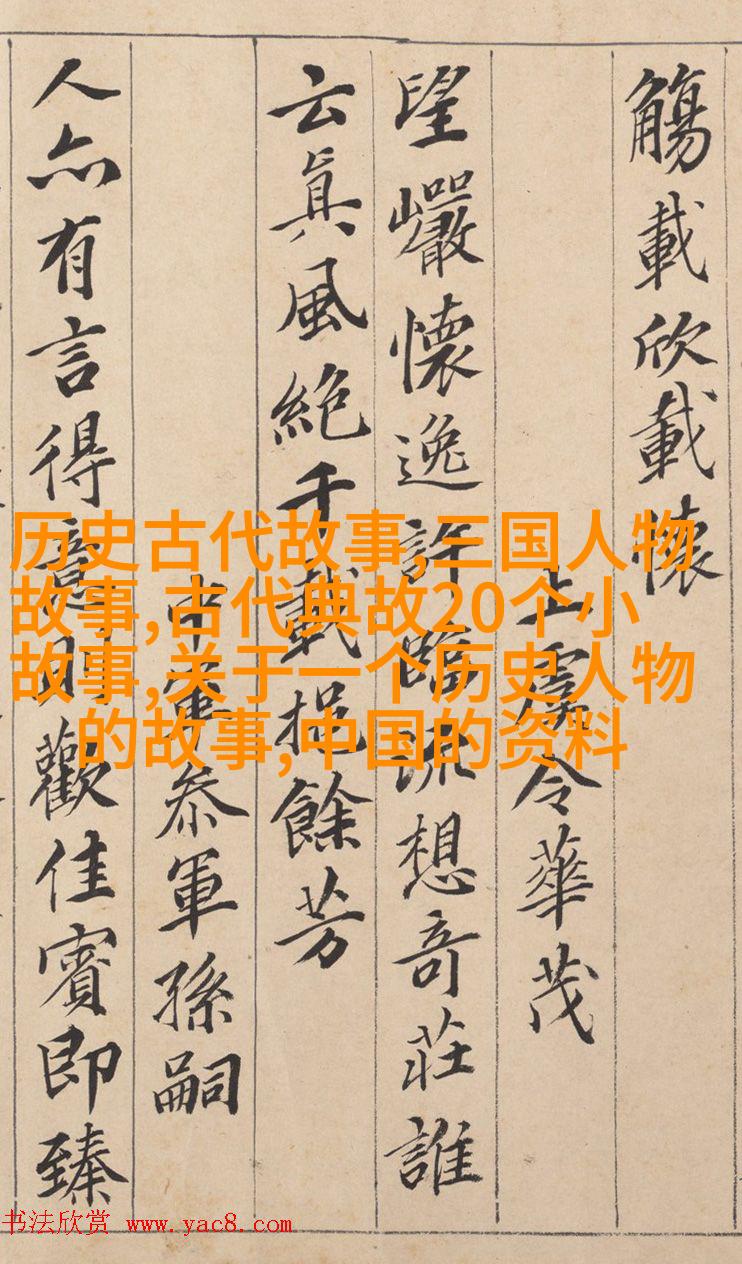 觴載欣載懷
上虞令華茂
望巖懷逸許臨流想奇莊誰
云眞風絶千載挹餘芳
中軍叅軍孫嗣
人亦有言得意則歡佳賓即臻
历史古代故事,三国人物
故事,古代典故20个小
故事,关于一个历史人物
的故事,中国的资料
书法欣赏 www.yac8.com